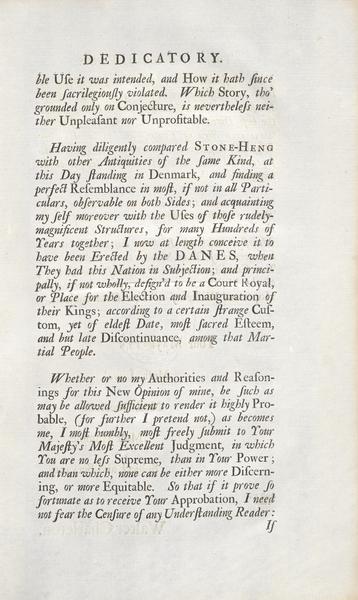 DEDICATORY.
ble Uſe it was intended, and How it hath ſince
been ſacrilegiouſly violated. Which Story, tho'
grounded only on Conjecture, is nevertheleſs nei-
ther Unpleaſant nor Unprofitable.
Having diligently compared STONE-HENG
with other Antiquities of the ſame Kind, at
this Day ſtanding in Denmark, and finding a
perfect Reſemblance in moſt, if not in all Parti-
culars, obſervable on both Sides; and acquainting
my ſelf moreover with the Uſes of thoſe rudely-
magnificent Structures, for many Hundreds of
Years together; I now at length conceive it to
have been Erected by the DANES, when
They had this Nation in Subjection; and princi-
pally, if not wholly, deſign'd to be a Court Royal,
or Place for the Election and Inauguration of
their Kings; according to a certain ſtrange Cuſ-
tom, yet of eldeſt Date, moſt ſacred Eſteem,
and but late Diſcontinuance, among that Mar-
tial People.
Whether or no my Authorities and Reaſon-
ings for this New Opinion of mine, be ſuch as
may be allowed ſufficient to render it highly Pro-
bable, (for further I pretend not,) as becomes
me, I moſt humbly, moſt freely ſubmit to Your
Majeſty's Moſt Excellent Judgment, in which
You are no leſs Supreme, than in Your Power;
and than which, none can be either more Diſcern-
ing, or more Equitable. So that if it prove ſo
fortunate as to receive Your Approbation, I need
not fear the Cenſure of any Underſtanding Reader:
If